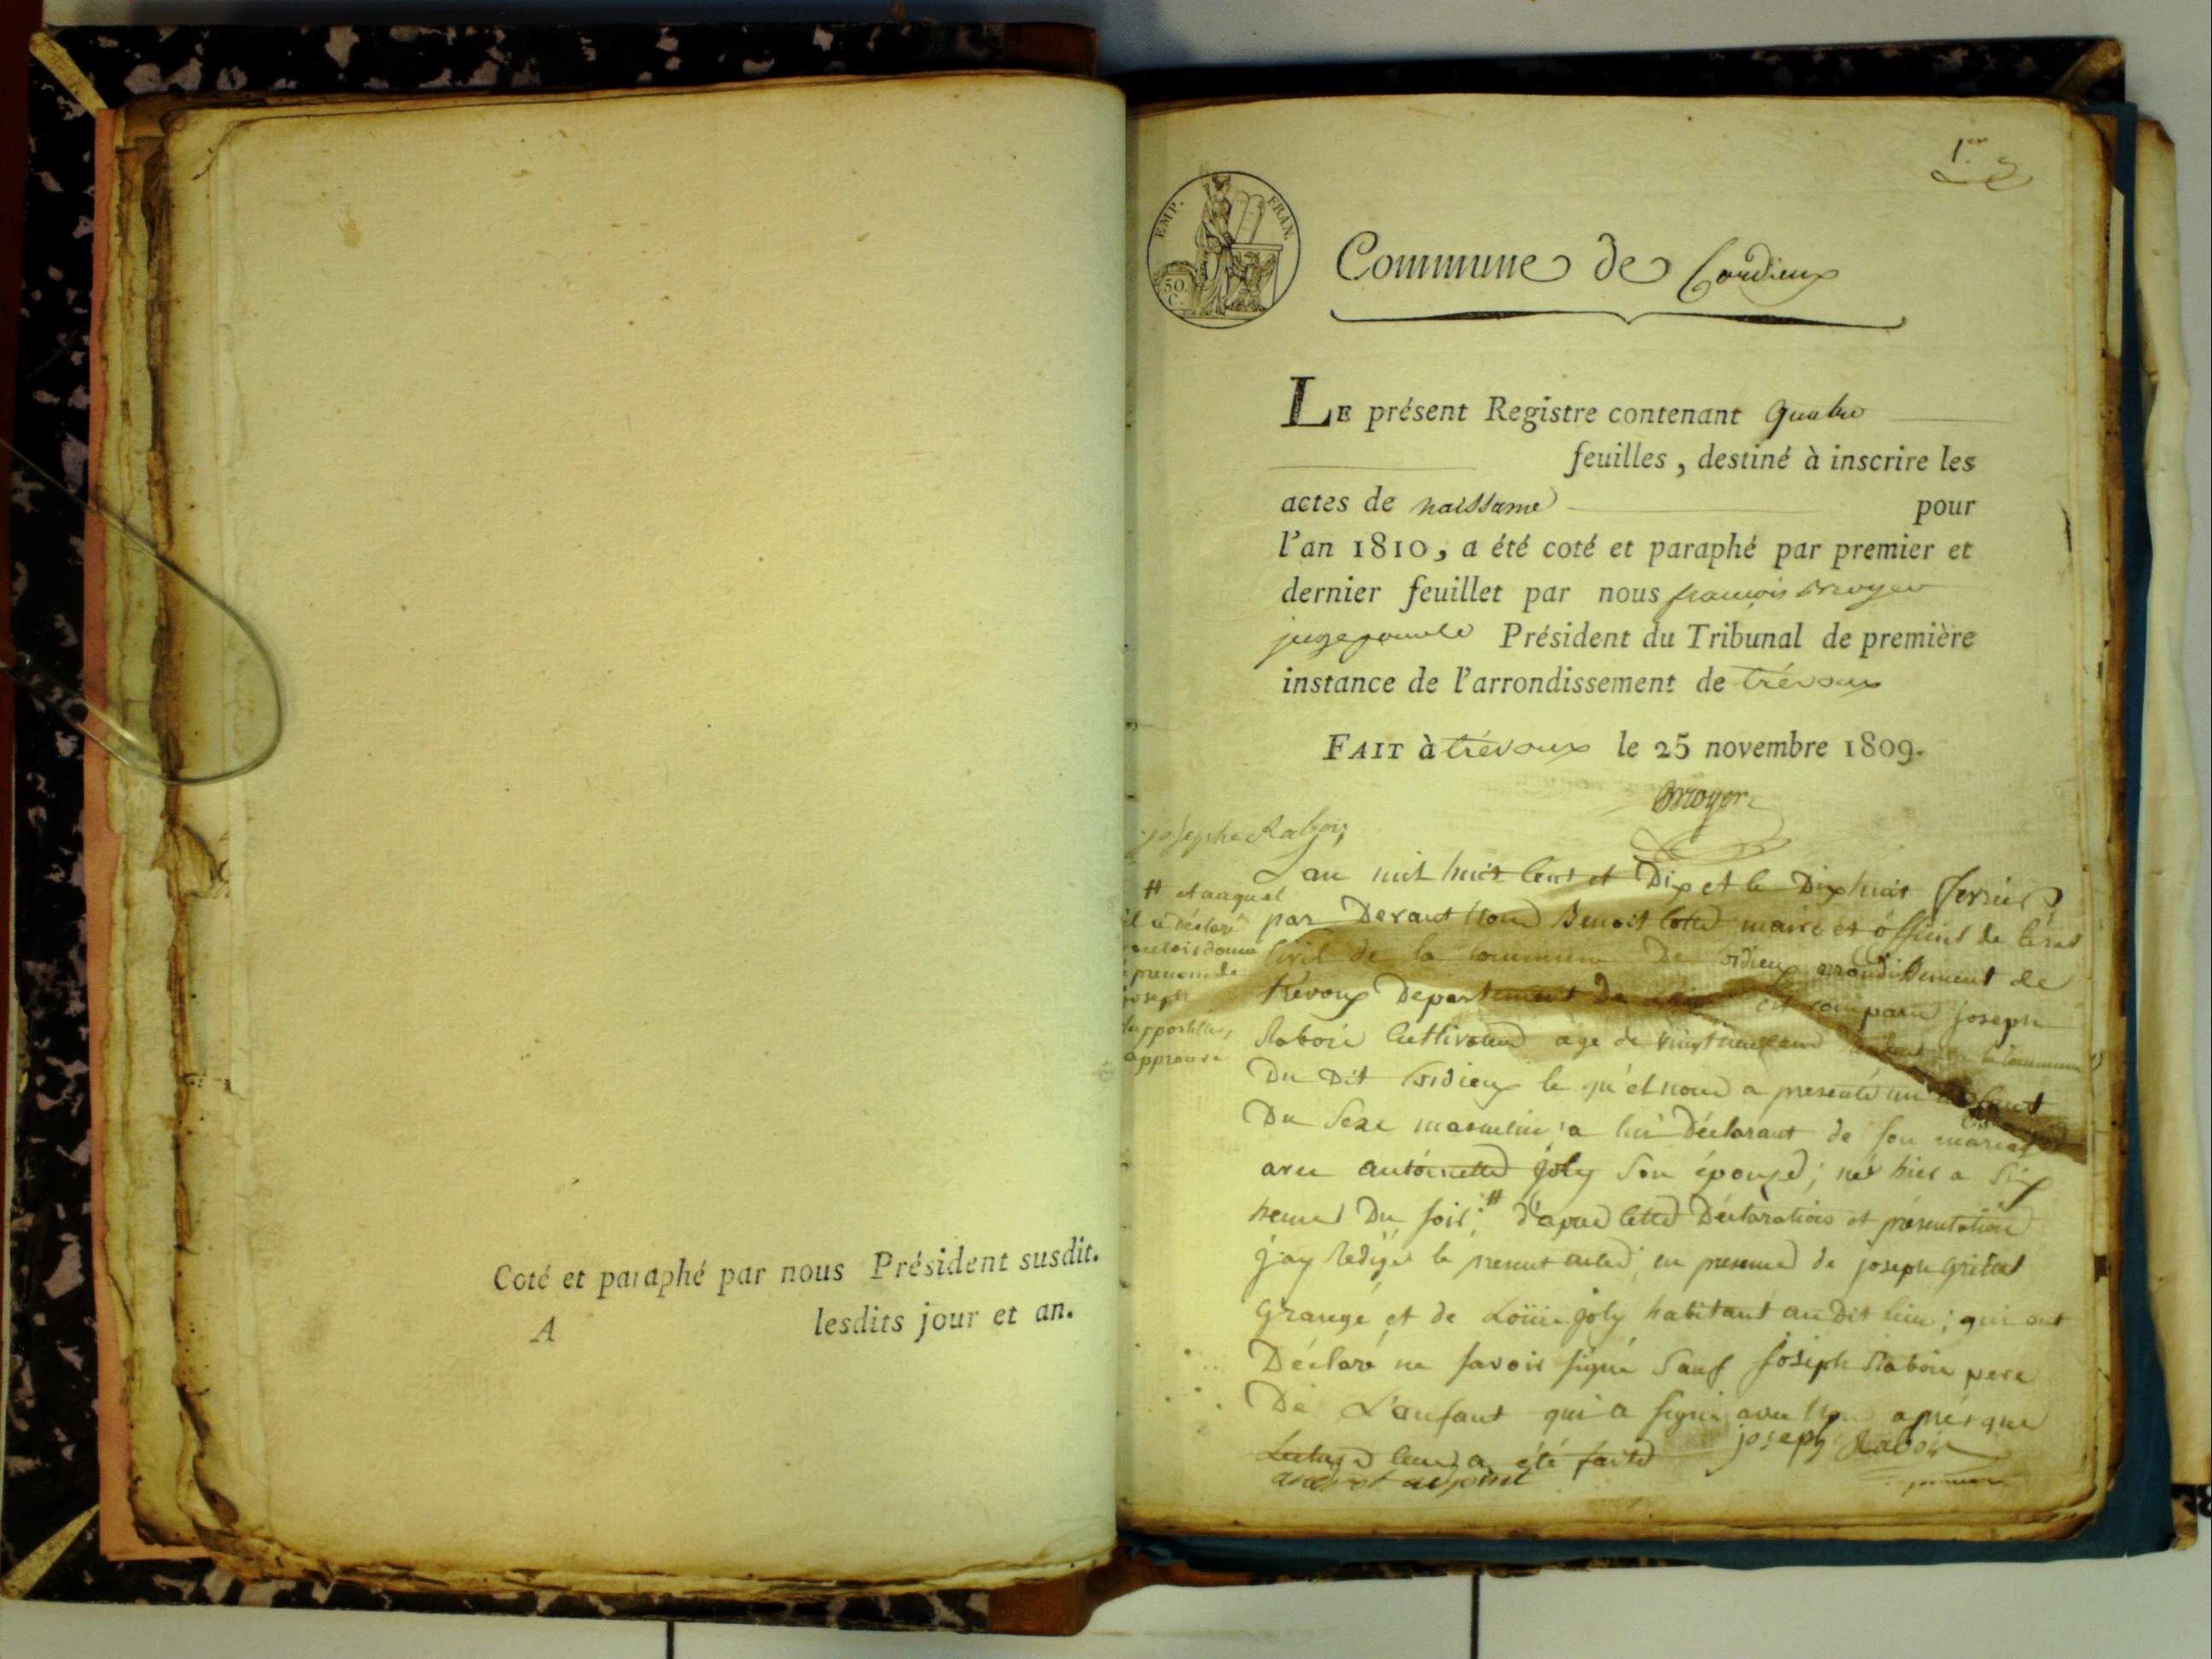 Coté et paraphé par nous Président susdit.
A lesdits jour et an.
1.er
EMP. FRAN.
50.
C.
Commune de Cordieux
LE présent Registre contenant quatre
feuilles, destiné à inscrire les
actes de naissance pour
l'an 1810, a été coté et paraphé par premier et
dernier feuillet par nous françois
juge pour le Président du Tribunal de première
instance de l'arrondissement de trévoux
FAIT à trévoux le 25 novembre 1809.
josephe Raboin
# et auquel
il a déclaré
vouloir donner
prenom de
joseph
approuvé
Lan mil huit Cent et Dix et le Dix huit fevrier
par Devant Nous Benoit Cotte maire et officier de letat
Civil de la Commune De Cordieux arrondissement de
trevoux Departement de est comparu joseph
Raboin Cultivateur age de vingt neuf ans la Commune
Du Dit Cordieux le qu'el nous a presenté un Enfant
Du Sexe masculin a lui Déclarant de son mariage
avec antoinette joly Son épouse; né hier a Six
heures Du soir; # d'apres cette Déclaration et présentation
j'ay Redigé le present acte, en presence de joseph
Grangé et de Loüis joly habitant au Dit lieu; qui ont
Déclaré ne savoir signé Sauf joseph Raboin pere
De L'anfant qui a signé avec Nous aprés que
Lecture leur a été faite joseph Raboin
adjoint